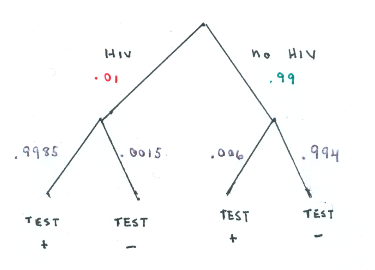 HIV no HIV
.01 .99
.9985 .0015 .006 .994
TEST TEST TEST TEST
+ - + -